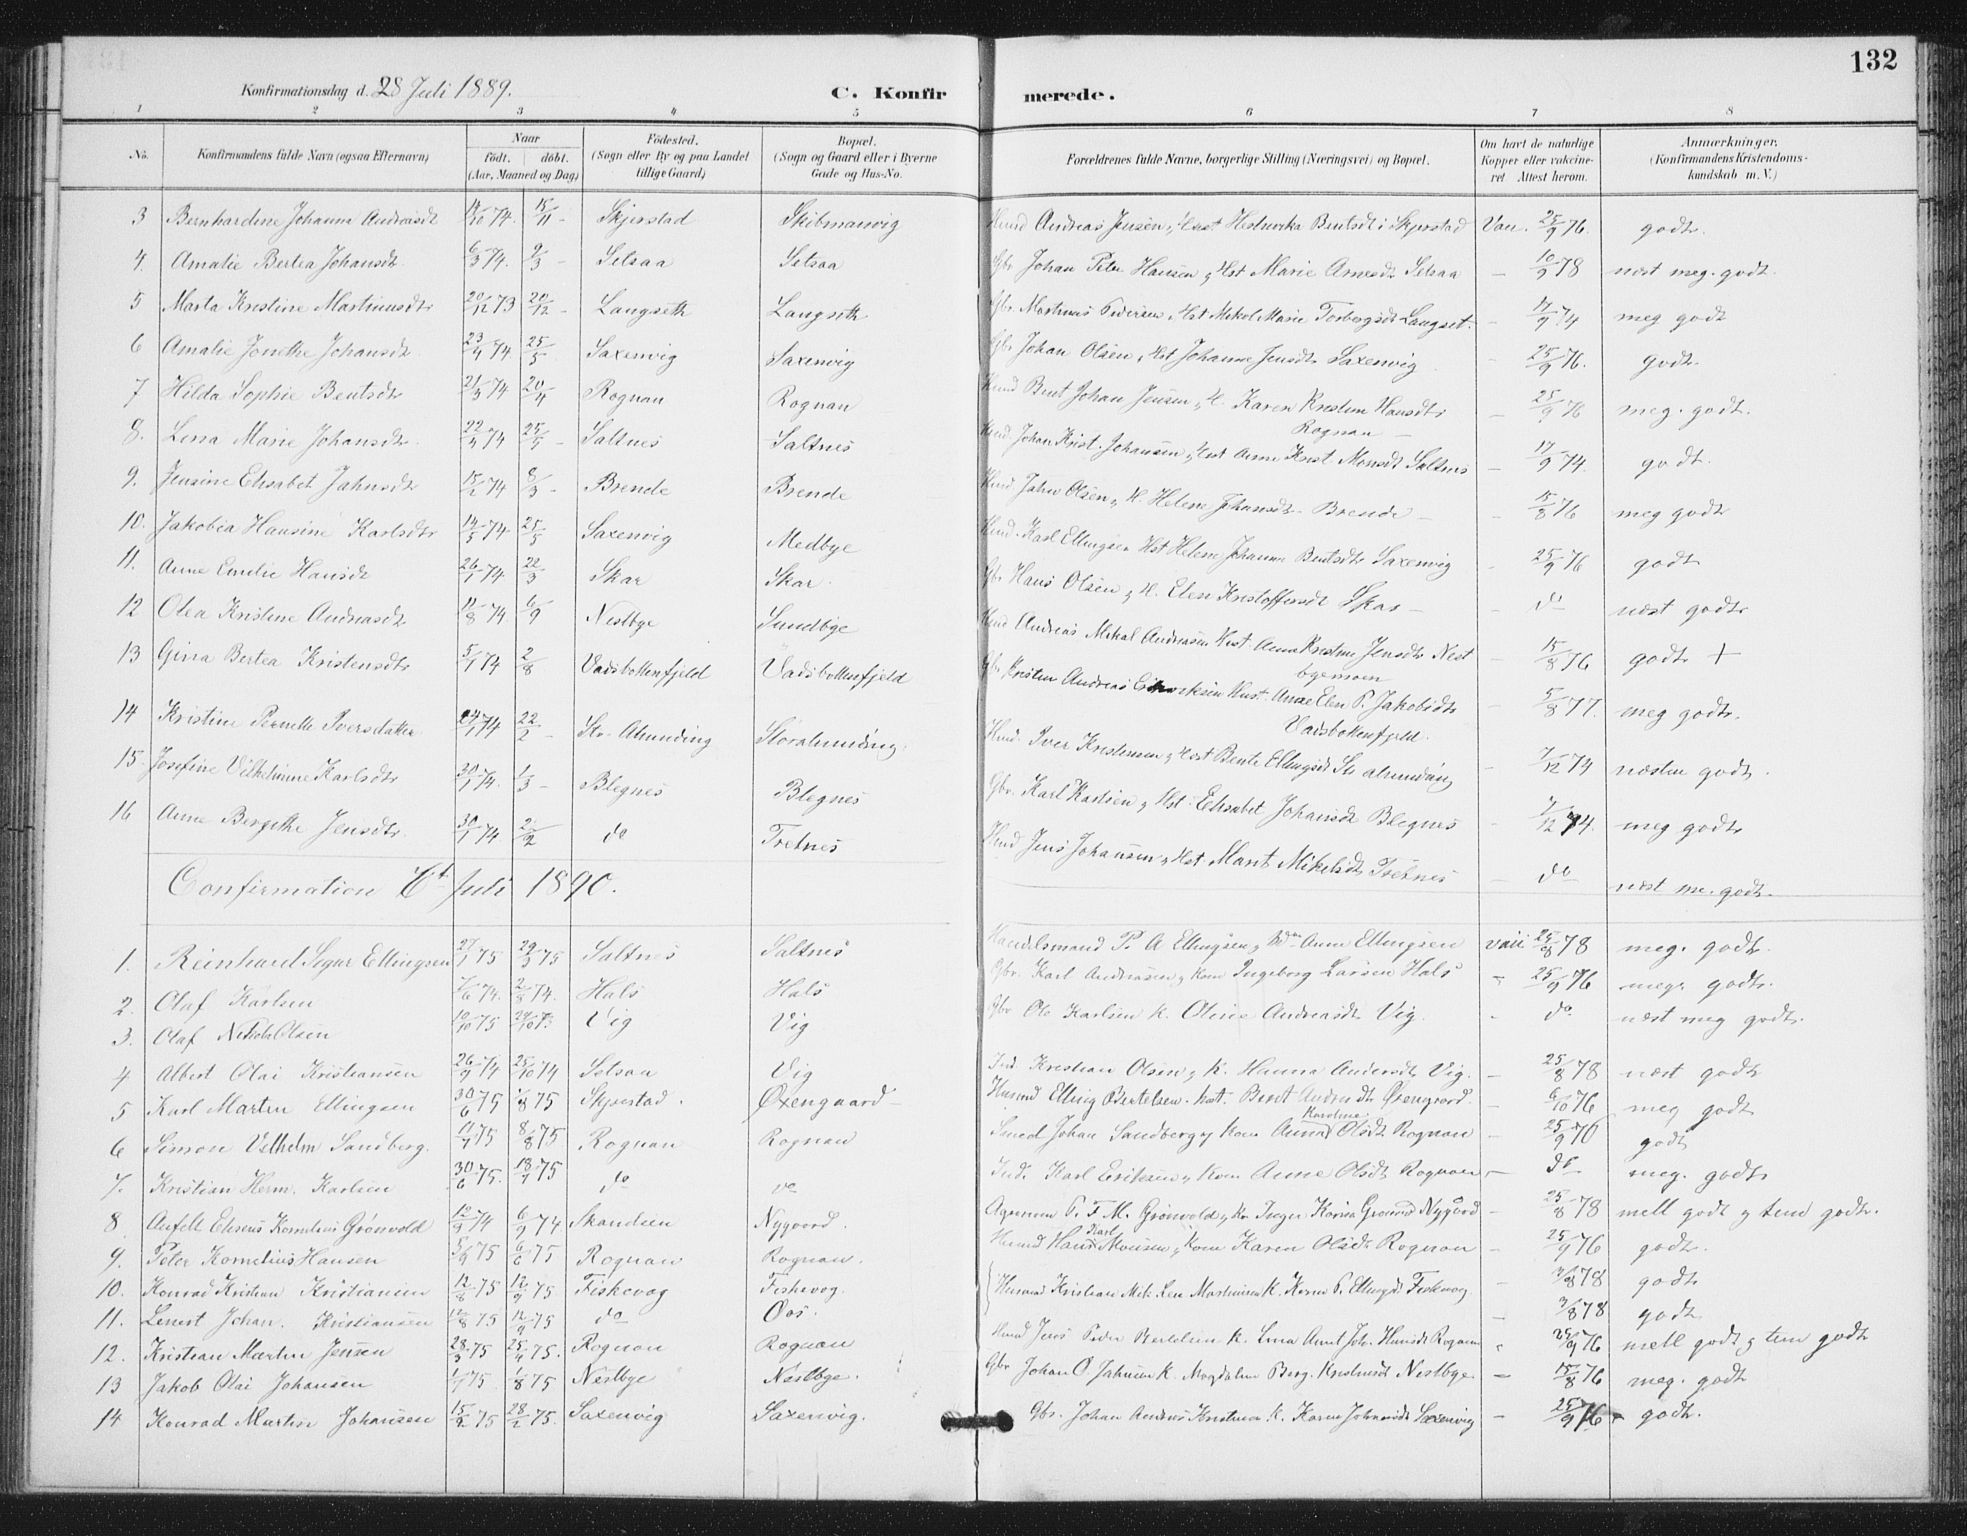 132
Konfirmationsdag d. 28 Juli 1889. C. Konfirmerede.
1 2 3 4 5 6 7 8
No. Konfirmandens fulde Navn (ogsaa Efternavn) Naar født. døbt. (Aar, Maaned og Dag) Fødested. (Sogn eller By og paa Landet tillige Gaard) Bopæl. (Sogn og Gaard eller i Byerne Gade og Hus-No. Forældrenes fulde Navne, borgerlige Stilling (Næringsvei) og Bopæl. Om havt de naturlige Kopper eller vakcineret. Attest herom. Anmærkninger. (Konfirmandens Kristendomskundskab m. V.)
3 Bernhardine Johanna Andreasdt 74. 15/11 - Skjerstad Skibmanvig Andreas Jensen Bentsdt i Skjerstad Vac. 25/9 76. godt.
4. Amalie Bertea Johansdt. 6/3 74. - Setsaa Setsaa Gbr Johan Peter Hansen Hst Marie Arnesdt Setsaa - 10/9 78 næst meg. godt.
5 Marta Kristine Martinusdtr 20/12 73 20/12 - Langseth Langseth Gbr. Martinus Pedersen Hst Mikol Marie Torbergsdt Langset. - 17/9 74 meg godt
6 Amalie Jonethe Johansdt. 23/4 74 25/5 - Saxenvig Saxenvig Gbr Johan Olsen Hst Johanne Jensdtr Saxenvig - 25/9 76. godt.
7 Hilda Sophie Bentsdt 21/3 74 20/4 Rognan Rognan Hmd Bent Johan Jensen H. Karen Kristine Hansdtr Rognan - 25/9 76 meg. godt.
8. Lena Marie Johansdtr 22/4 74 25/5 - Saltnes Saltnes Hmd. Johan Krist. Johansen Hst Anne Krist Monsdt Saltnes - 17/9 74. godt.
9. Jensine Elisabet Jahnsdt 15/2 74 8/3 - Brende Brende Hmd Jahn Olsen H. Helene Johansdt. Brende - 15/8 76 meg godt
10. Jakobia Hansine Karlsdtr 14/5 74 25/5 Saxenvig Medbye Hmd. Karl Ellingsen Hst Helene Johanna Bentsdtr Saxenvig - 25/9 76 godt
11. Anne Emilie Hansdt 26/1 74 22/3 Skar Skar. Gbr Hans Olsen H. Elen Kristoffersdt Skar - do næst godt
12 Olea Kristine Andreasdt 11/8 74. 6/9 Nestbye Sundbye Hmd Andreas Mikal Andreasen Hst. Anna Kristine Jensdtr Nestbyemoen - 15/8 76 godt +
13 Gina Bertea Kristensdtr 5/1 74 2/8 Vadsbottenfjeld Vadsbottenfjeld Gbr Kristen Andreas Hust. Anne Elen P. Jakobsdtr Vadsbottenfjeld. 5/8 77. meg godt.
14 Kristine Pernelle Iversdatter 74 22/2 - St. Alminding Storalminding. Hmd. Iver Kristensen Hst Bente Ellingsdt St. alminding - 7/12 74 næsten godt.
15. Josefine Vilhelmine Karlsdtr 30/1 74. 1/3 - Blegnes Blegnes Gbr. Karl Karlsen Hst. Elisabet Johansdt Blegnes - 7/12 74. meg godt
16 Anne Bergithe Jensdtr. 30/1 74 2/2 do Tretnes Hmd Jens Johansen Hst. Marit Mikelsdtr Tretnes - do næst me. godt.
Confirmation 6t Juli 1890.
1. Reinhard Sigur Ellingsen 27/1 75 29/3 75 Saltnes Saltnes Handelsmand P. A Ellingsen Anne Ellingsen vaii 25/8 78 meg. godt.
2. Olaf Karlsen 7/6 74. 2/8 74. Hals Hals Gbr. Karl Andreasen Kone Ingeborg Larsen Hals 25/9 76 meg. godt.
3. Olaf Olsen 10/10 75 Vig Vig Gbr Ole Karlsen K. Oline Andreasdt Vig. - do næst meg godt.
4 Albert Olai Kristiansen 26/9 74 25/10 74 Setsaa Vig Ind. Kristian Olsen K. Hanna Andersdt Vig. - 25/8 78 næst godt
5 Karl Martin Ellingsen 30/6 75 1/8 75 Skjerstad. Øxengaard Husmd Elling Bertelsen. hst. Berit Andersdt Øxengaard. - 6/10 76 meg godt
6 Simon Vilhelm Sandberg. 11/7 75 8/8 75 Rognan Rognan Smed Johan Sandberg Kone Anna Karoline Olsdt Rognan - 25/9 76 godt
7. Kristian Herm. Karlsen 30/6 75. 18/7 75 do do Ind. Karl Eriksen Kone Anne Olsdt Rognan - do meg. godt.
8 Anfelt Eliseus Kornelius Grønvold 12/3 74 6/9 74 Skandsen Nygaard. Agronom P. F. M. Grønvold Kr. Inger Karina Grønvold Nygård - 25/8 78 mell godt og tem godt.
9. Peter Kornelius Hansen 5/4 75 6/6 75 Rognan Rognan. Husmd Hans Karl Monsen Kone Karen Olsdt Rognan - 25/9 76 godt.
10. Konrad Kristian Kristiansen 12/8 75 12/9 75 Fiskevog Fiskevog. Husmd Kristian Mik. Len Martinsen K. Karen P. Ellingsdt Fiskevog - 3/8 78 godt
11. Lenert Johan. Kristiansen 12/8 75 12/9 75 do Oos. - 3/8 78 godt
12. Kristian Martin Jensen 28/3 75 25/4 75. Rognan Rognan Hmd Jens Peder Bertelsen K. Lina Hansdt Rognan 25/9 76 mell godt og tem godt
13 Jakob Olai Johansen 1/7 75. 1/8 75 Nestbye Nestbye. Gbr Johan O. Jahnsen K. Magdalena Berg. Kristensdt Nestbye - 15/8 76 meg. godt
14 Konrad Martin Johansen 15/2 75 28/2 75. Saxenvig Saxenvig. Gbr. Johan Andreas Kristensen K. Karen Johansdt Saxenvig - 25/9 76 - godt.